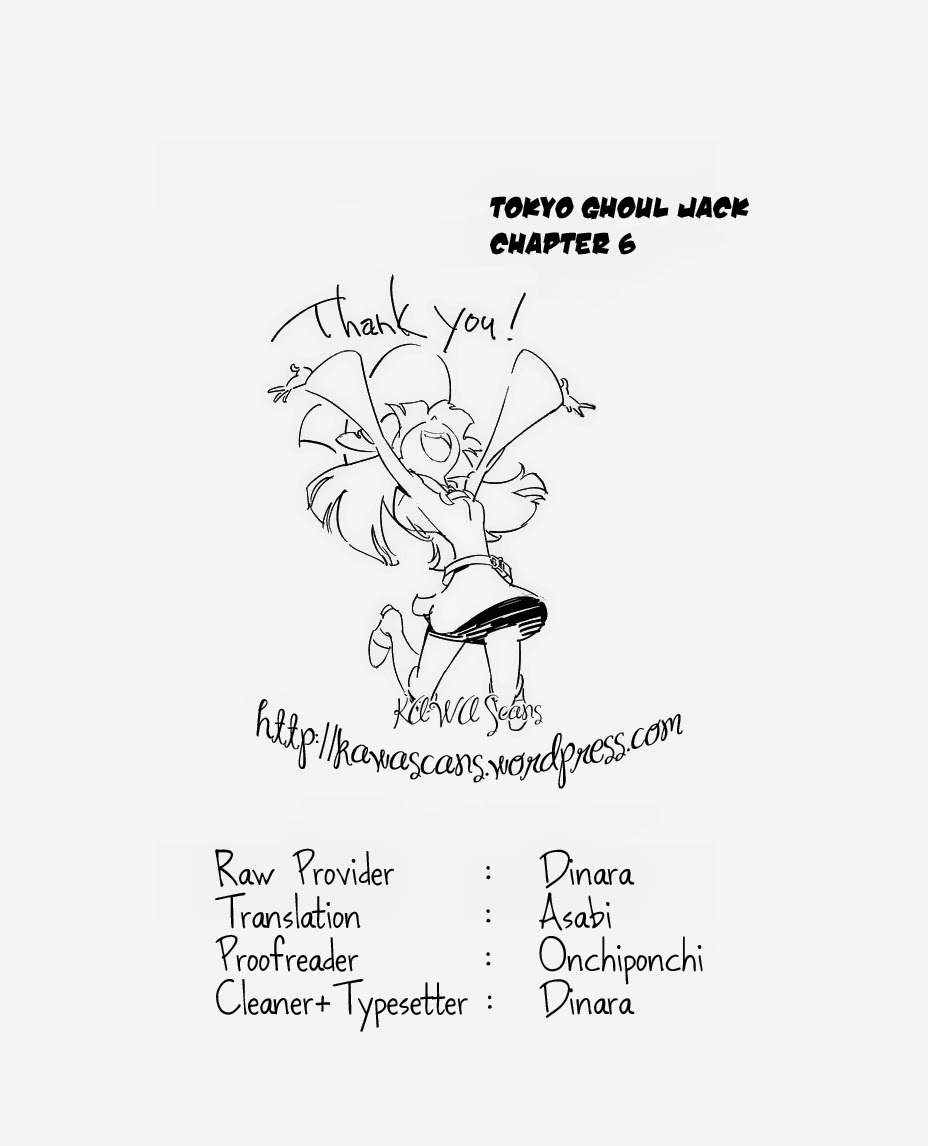 TOKYO GHOUL JACK
CHAPTER 6
Thank you!
KAWA Scans
http://kawascans.wordpress.com
Raw Provider : Dinara
Translation : Asabi
Proofreader : Onchiponchi
Cleaner+Typesetter : Dinara